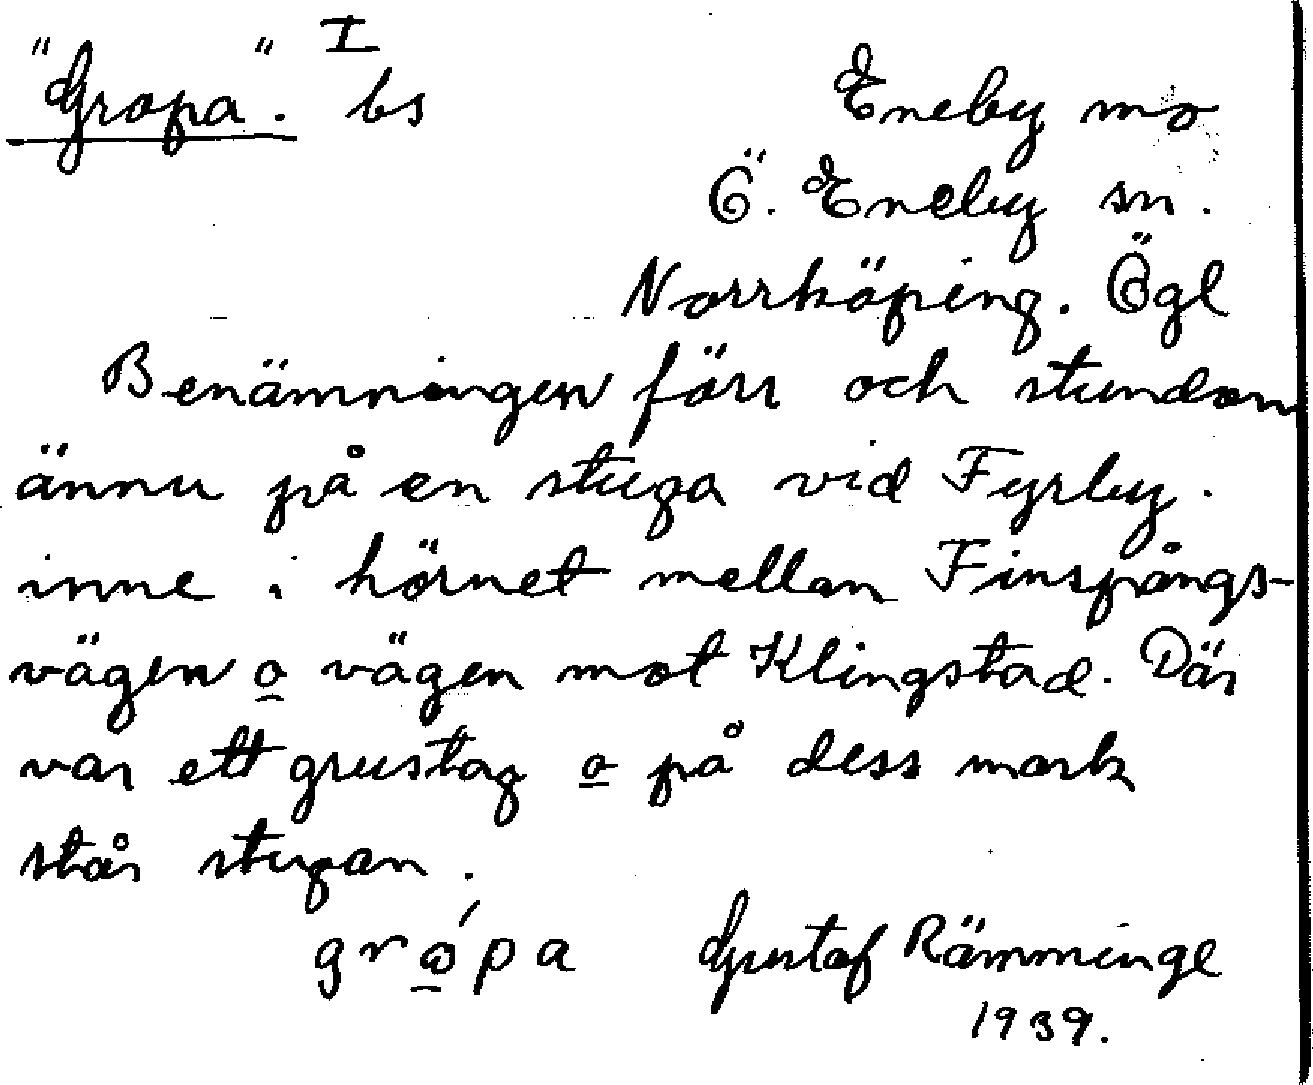 "Gropa". I bs
Eneby mo
Ö. Eneby sn.
Norrköping. Ögl
Benämningen förr och stundom
ännu på en stuga vid Fyrby.
inne i hörnet mellan Finspångs-
vägen o vägen mot Klingstad. Där
var ett grustag o på dess mark
står stugan.
grópa Gustaf Rämminge
1939.